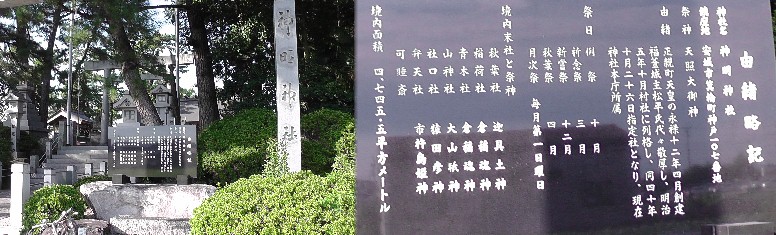 神明神社
由緒略記
神社名 神明神社
鎮座地 安城市東端町神戸一〇七番地
祭神 天照大御神
由緒 正親町天皇の永禄十二年四月創建
福釜城主松平氏代々敬厚し、明治
五年十月村社に列格し、同四十年
十月二十六日指定社となり、現在
神社本庁所属
祭日 例祭 十月
祈念祭 三月
新嘗祭 十二月
秋葉祭 四月
月次祭 毎月第一日曜日
境内末社と祭神
秋葉社 迦具土神
稲荷社 倉稲魂神
青木社 倉稲魂神
山神社 大山祇神
社口社 猿田彦神
弁天社 市杵島姫神
可睡斎
境内面積 四、七四五・五平方メートル